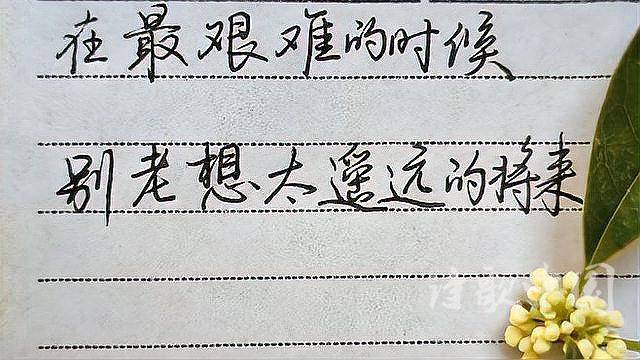 在最艰难的时候
别老想太遥远的将来
诗歌中国